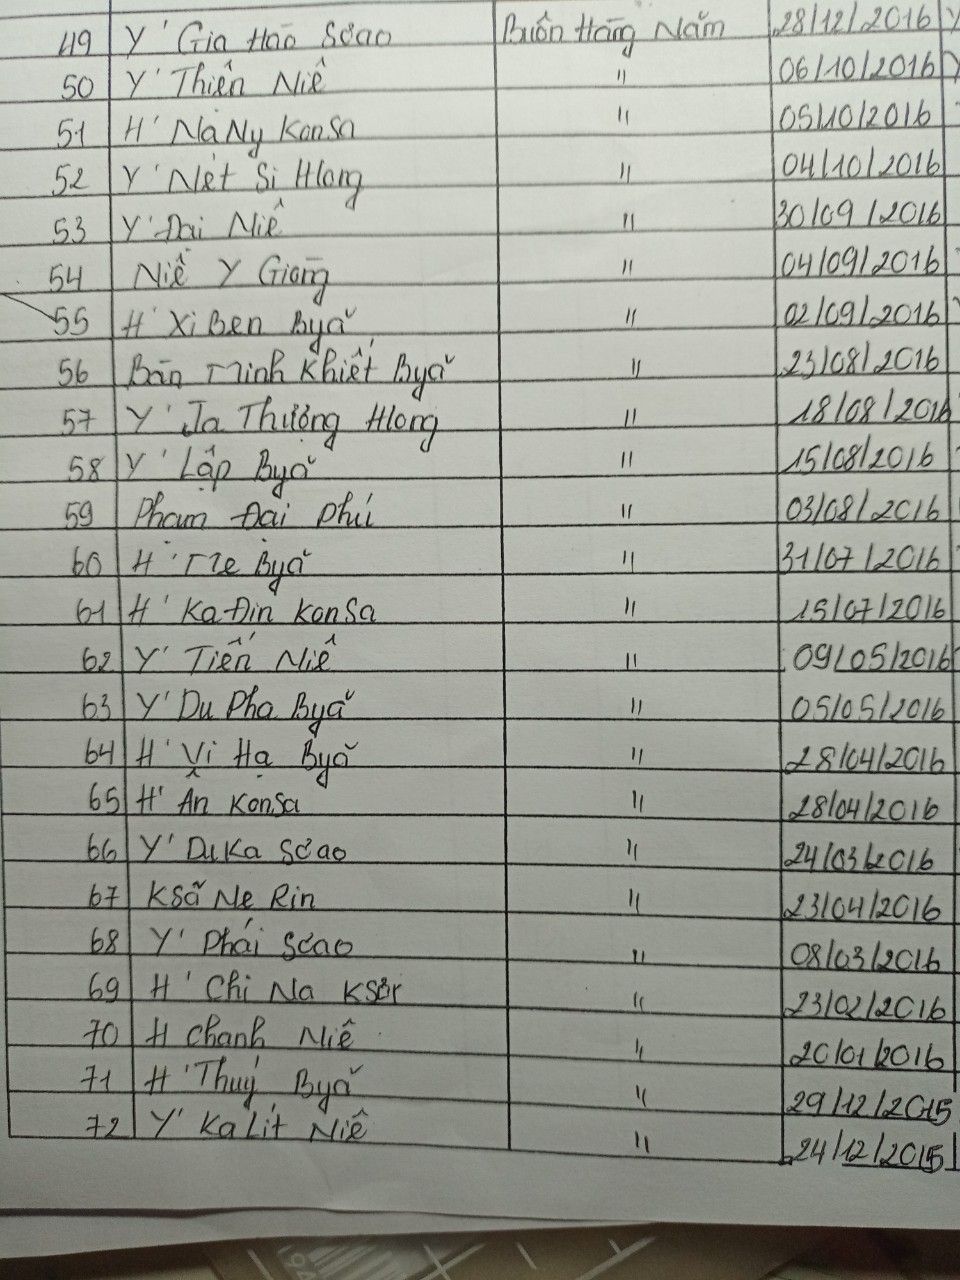 49 Y' Gia Hao Sơao Buôn Hàng Năm 28/12/2016
50 Y' Thiên Niê " 06/10/2016
51 H' Na Ny KonSa " 05/10/2016
52 Y' Nét Si Hlong " 04/10/2016
53 Y' Đai Niê " 30/09/2016
54 Niê Y Giang " 04/09/2016
55 H' Xi Ben Byă " 02/09/2016
56 Bàn Minh Khiết Byă " 23/08/2016
57 Y' Ja Thương Hlong " 18/08/2016
58 Y' Lập Byă " 15/08/2016
59 Phạm Đại Phú " 03/08/2016
60 H' Me Byă " 31/07/2016
61 H' Ka Đin KonSa " 15/07/2016
62 Y' Tiến Niê " 09/05/2016
63 Y' Du Pha Byă " 05/05/2016
64 H' Vi Hạ Byă " 28/04/2016
65 H' Ân KonSa " 28/04/2016
66 Y' DuKa Sơao " 24/03/2016
67 KSă Ne Rin " 23/04/2016
68 Y' Phái Sơao " 08/03/2016
69 H' Chi Na KSơr " 23/02/2016
70 H Chanh Niê " 20/01/2016
71 H' Thuý Byă " 29/12/2015
72 Y' KaLít Niê " 24/12/2015